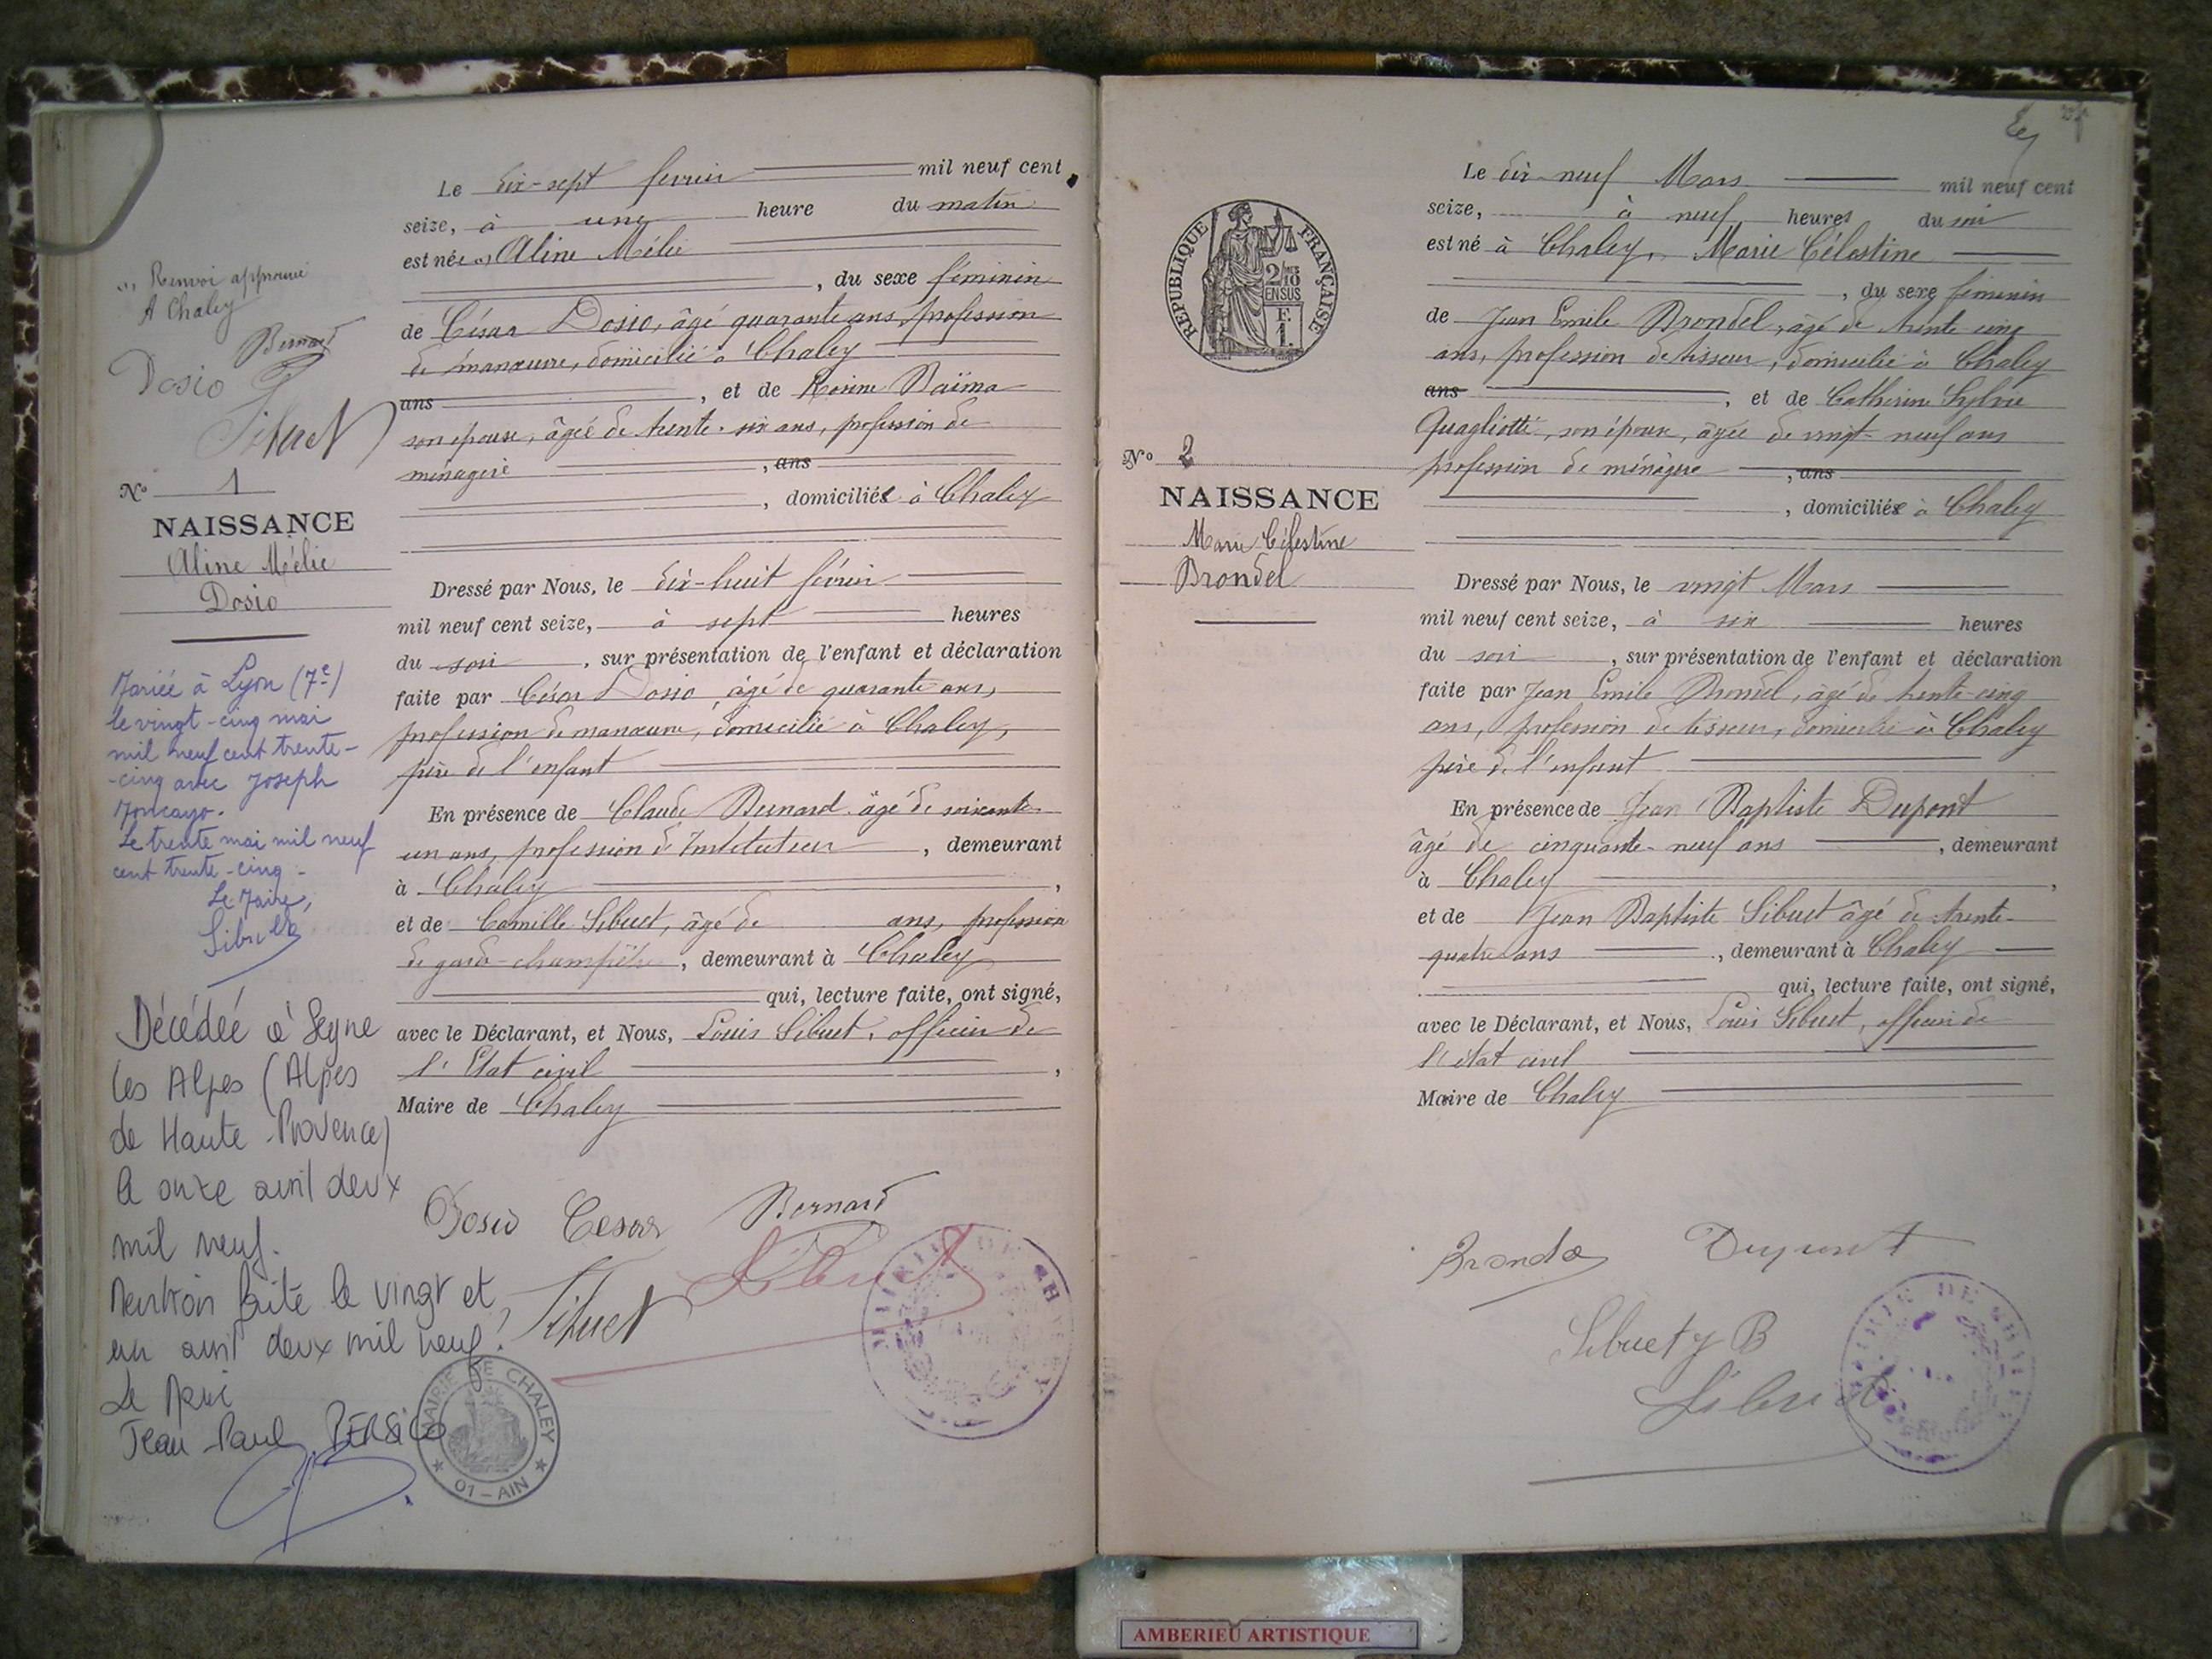 Le dix-sept février mil neuf cent
seize, à une heure du matin
est née (1) Aline Mélie
, du sexe féminin
de César Dosio, âgé quarante ans, profession
de manœuvre, domicilié à Chaley
ans , et de Rosine Raïma
son épouse, âgée de trente-six ans, profession de
ménagère , ans
, domiciliés à Chaley
Dressé par Nous, le dix-huit février
mil neuf cent seize, à sept heures
du soir , sur présentation de l'enfant et déclaration
faite par César Dosio, âgé de quarante ans,
profession de manœuvre, domicilié à Chaley,
père de l'enfant
En présence de Claude Bernard âgé de soixante-
un ans, profession d'Instituteur , demeurant
à Chaley ,
et de Camille Sibuet, âgé de ans, profession
de garde-champêtre , demeurant à Chaley
qui, lecture faite, ont signé,
avec le Déclarant, et Nous, Louis Sibuet, officier de
l'Etat civil ,
Maire de Chaley
Dosio Cesar Bernard
Sibuet Sibuet
(1) Renvoi approuvé
A Chaley
Bernard
Dosio
Sibuet
No 1
NAISSANCE
Aline Mélie
Dosio
Mariée à Lyon (7e)
le vingt-cinq mai
mil neuf cent trente-
-cinq avec Joseph
Moncayo.
Le trente mai mil neuf
cent trente-cinq.
Le Maire,
Sibuet
Décédée à Seyne
les Alpes (Alpes
de Haute-Provence)
le onze avril deux
mil neuf.
Mention faite le vingt et
un avril deux mil neuf.
Le Maire
Jean-Paul PERSICO
MAIRIE DE CHALEY
01 - AIN
Le dix-neuf Mars mil neuf cent
seize, à neuf heures du soir
est né à Chaley, Marie Célestine
, du sexe féminin
de Jean Emile Brondel, âgé de trente-cinq
ans, profession de tisseur, domicilié à Chaley
ans , et de Catherine Sylvie
Quagliotti, son épouse, âgée de vingt-neuf ans
profession de ménagère , ans
, domiciliés à Chaley
Dressé par Nous, le vingt Mars
mil neuf cent seize, à six heures
du soir , sur présentation de l'enfant et déclaration
faite par Jean Emile Brondel, âgé de trente-cinq
ans, profession de tisseur, domicilié à Chaley
père de l'enfant
En présence de Jean Baptiste Dupont
âgé de cinquante-neuf ans , demeurant
à Chaley ,
et de Jean Baptiste Sibuet âgé de trente-
quatre ans , demeurant à Chaley
qui, lecture faite, ont signé,
avec le Déclarant, et Nous, Louis Sibuet, officier de
l'état civil
Maire de Chaley
Brondel Dupont
Sibuet J B
Sibuet
REPUBLIQUE FRANÇAISE
2/10 EN SUS
F.
1.
No 2
NAISSANCE
Marie Célestine
Brondel
AMBERIEU ARTISTIQUE